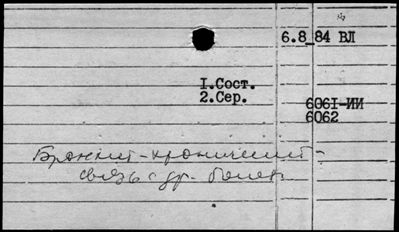 6.8_84 ВЛ
1.Сост.
2.Сер.
6061-ИИ
6062
Бронхит-хронический-
связь с др. болез.